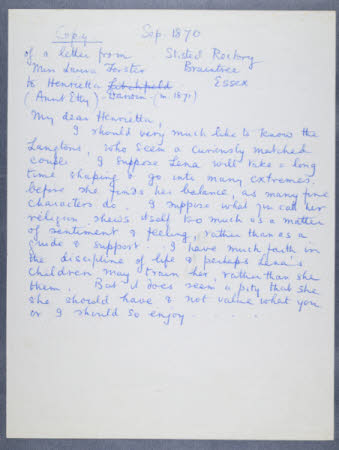 Copy Sep. 1870
of a letter from Stisted Rectory
Miss Laura Forster Braintree
to Henrietta Litchfield Essex
(Aunt Etty) Darwin (m. 1871)
My dear Henrietta,
I should very much like to know the
Langtons, who seem a curiously matched
couple. I suppose Lena will take a long
time shaping & go into many extremes
before she finds her balance, as many fine
characters do. I suppose what you call her
religion shews itself too much as a matter
of sentiment & feeling, rather than as a
guide & support. . I have much faith in
the discipline of life & perhaps Lena's
children may train her, rather than she
them. But it does seem a pity that she
she should have & not value what you
or I should so enjoy . . . . . .